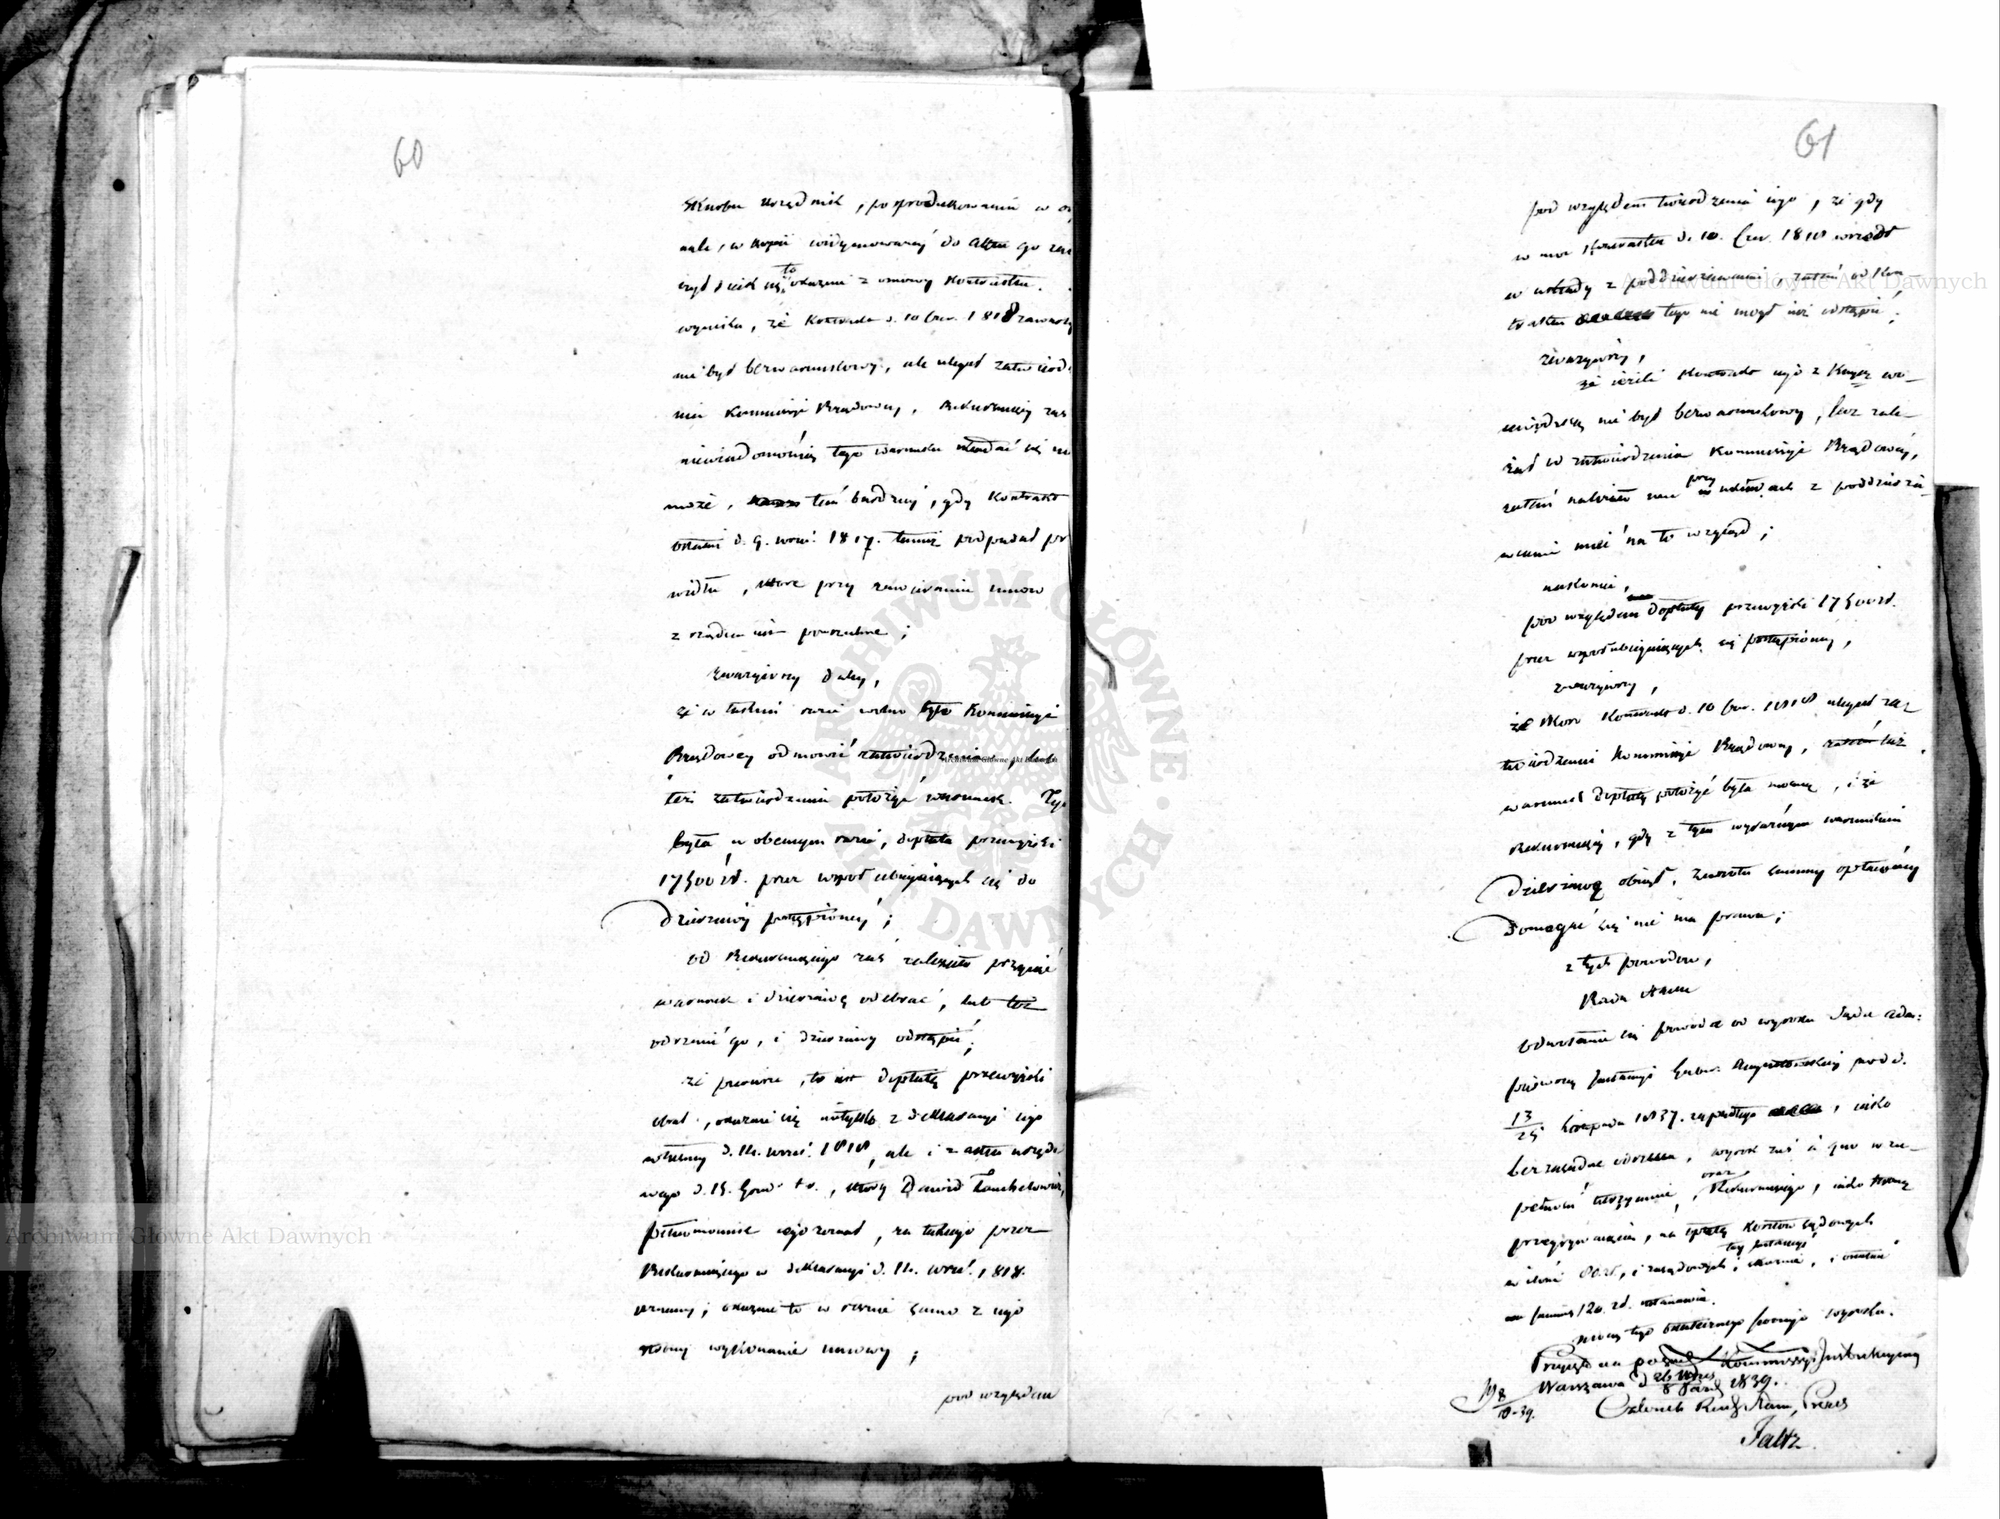 60
Skarbu urzędnik, po produkowaniu w
nale, w kopii widymowanéj do aktu go
to
się okazuie z umowy kontraktu.
wynika, że Kontrakt d. 10 Czer. 1818 zawarty
nie był bezwarunkowy, ale ulegał zatwierd
niu Kommissyi Rządowey, Rekurruiący zaś
niewiadomością tego warunku składać się nie
może, tém bardziéj, gdy Kontrakt
ostatni d. 9. wrześ. 1817. temuż podpadał pr
widłu, które przy zawieraniu umów
z rządem iest powszechne;
zważywszy daléy,
że w takim razie wolno było Kommissyi
Rządowéy odmówić zatwierdzenia, lub
też zatwierdzeniu położyć warunek. Tym
była w obecnym razie, dopłata przewyżki
17500 zł. przez współubiegaiących się do
dzierżawy postąpionéj;
od Rekurruiącego zaś zależało przyiąć
warunek i dzierżawę odebrać, lub też
odrzucić go, i dzierżawy odstąpić;
że pierwsze, to iest dopłatę przewyżki
obrał, okazuie się nietylko z deklaracyi iego
własnéy d. 14. wrześ. 1818, ale i z aktu urzędo
wego d. 15. t. r., który Dawid
pełnomocnik iego zeznał, za takiego przez
Rekurruiącego w deklaracyi d. 14. wrześ. 1818.
uznany; okazuie to w sobie samo z iego
strony wykonanie umowy;
pod względem
61
pod względem twierdzenia iego, że gdy
w moc Kontraktu d. 10. Czer. 1818 wszedł
w układy z poddzierżawcami, zatém od Kon
traktu tego nie mógł iuż odstąpić;
zważywszy,
że ieżeli Kontrakt iego z Kassą wo-
iewódzką nie był bezwarunkowy, lecz zale-
żał od zatwierdzenia Kommissyi Rządowéy,
zatém należało mu przy układach z poddzierża-
wcami mieć na to wzgląd;
nakoniec,
pod względem dopłaty przewyżki 17500 zł.
przez współubiegaiących się postąpionéj,
zważywszy,
że skoro Kontrakt d. 10 Czer. 1818 ulegał za-
twierdzeniu Kommissyi Rządowéy, zatém też
warunek dopłaty położyć była mocna, i że
Rekurruiący, gdy z tym wyraźnym warunkiem
dzierżawę obiął, zwrotu summy opłaconéy
domagać się nie ma prawa;
z tych powodów,
Rada Stanu
odwołanie się powoda od wyroku Sądu Adm:
piérwszéj Instancyi Guber. Augustowskiéj pod d.
13/25 listopada 1837. zapadłego, iako
bezzasadne odrzuca, wyrok zaś à quo w zu-
pełności utrzymuie, oraz Rekurruiącego, iako stronę
przegrywaiącą, na opłatę kosztów sądowych
téy Instancyi
w ilości 80 zł., i zasądzonych, skazuie, i ostatnie
na summę 120. zł. ustanawia.
mocą tego ostatecznego swoiego wyroku.
Przyięto na Kommissyi Instrukcyinéy
Warszawa d 26 Wrześ / 8 Paźdź 1839.
8/10 39.
Członek Rady Stanu, Prezes
Faltz